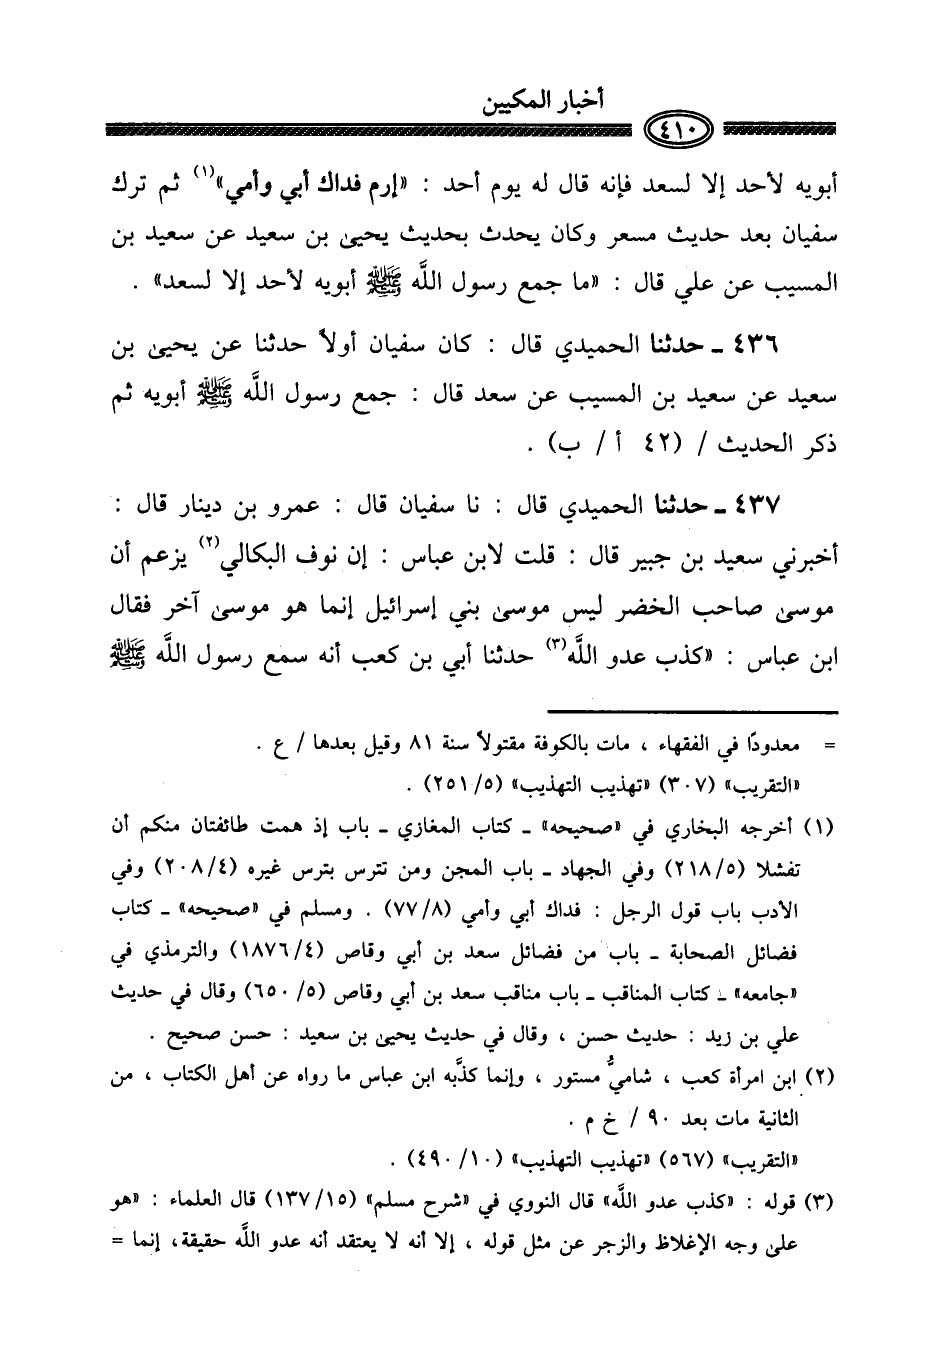 أخبار المكيين
٤١٠
أبويه لأحد إلا لسعد فإنه قال له يوم أحد : «إرم فداك أبي وأمي»(١) ثم ترك
سفيان بعد حديث مسعر وكان يحدث بحديث يحيىٰ بن سعيد عن سعيد بن
المسيب عن علي قال : «ما جمع رسول اللَّه ﷺ أبويه لأحد إلا لسعد» .
٤٣٦ ـ حدثنا الحميدي قال : كان سفيان أولاً حدثنا عن يحيىٰ بن
سعيد عن سعيد بن المسيب عن سعد قال : جمع رسول اللَّه ﷺ أبويه ثم
ذكر الحديث / (٤٢ أ / ب) .
٤٣٧ ـ حدثنا الحميدي قال : نا سفيان قال : عمرو بن دينار قال :
أخبرني سعيد بن جبير قال : قلت لابن عباس : إن نوف البكالي(٢) يزعم أن
موسىٰ صاحب الخضر ليس موسىٰ بني إسرائيل إنما هو موسىٰ آخر فقال
ابن عباس : «كذب عدو اللَّه(٣) حدثنا أبي بن كعب أنه سمع رسول اللَّه ﷺ
= معدودًا في الفقهاء ، مات بالكوفة مقتولاً سنة ٨١ وقيل بعدها / ع .
«التقريب» (٣٠٧) «تهذيب التهذيب» (٢٥١/٥) .
(١) أخرجه البخاري في «صحيحه» ـ كتاب المغازي ـ باب إذ همت طائفتان منكم أن
تفشلا (٢١٨/٥) وفي الجهاد ـ باب المجن ومن تترس بترس غيره (٢٠٨/٤) وفي
الأدب باب قول الرجل : فداك أبي وأمي (٧٧/٨) . ومسلم في «صحيحه» ـ كتاب
فضائل الصحابة ـ باب من فضائل سعد بن أبي وقاص (١٨٧٦/٤) والترمذي في
«جامعه» ـ كتاب المناقب ـ باب مناقب سعد بن أبي وقاص (٦٥٠/٥) وقال في حديث
علي بن زيد : حديث حسن ، وقال في حديث يحيىٰ بن سعيد : حسن صحيح .
(٢) ابن امرأة كعب ، شاميٌّ مستور ، وإنما كذَّبه ابن عباس ما رواه عن أهل الكتاب ، من
الثانية مات بعد ٩٠ / خ م .
«التقريب» (٥٦٧) «تهذيب التهذيب» (٤٩٠/١٠) .
(٣) قوله : «كذب عدو اللَّه» قال النووي في «شرح مسلم» (١٣٧/١٥) قال العلماء : «هو
علىٰ وجه الإغلاظ والزجر عن مثل قوله ، إلا أنه لا يعتقد أنه عدو اللَّه حقيقة، إنما =